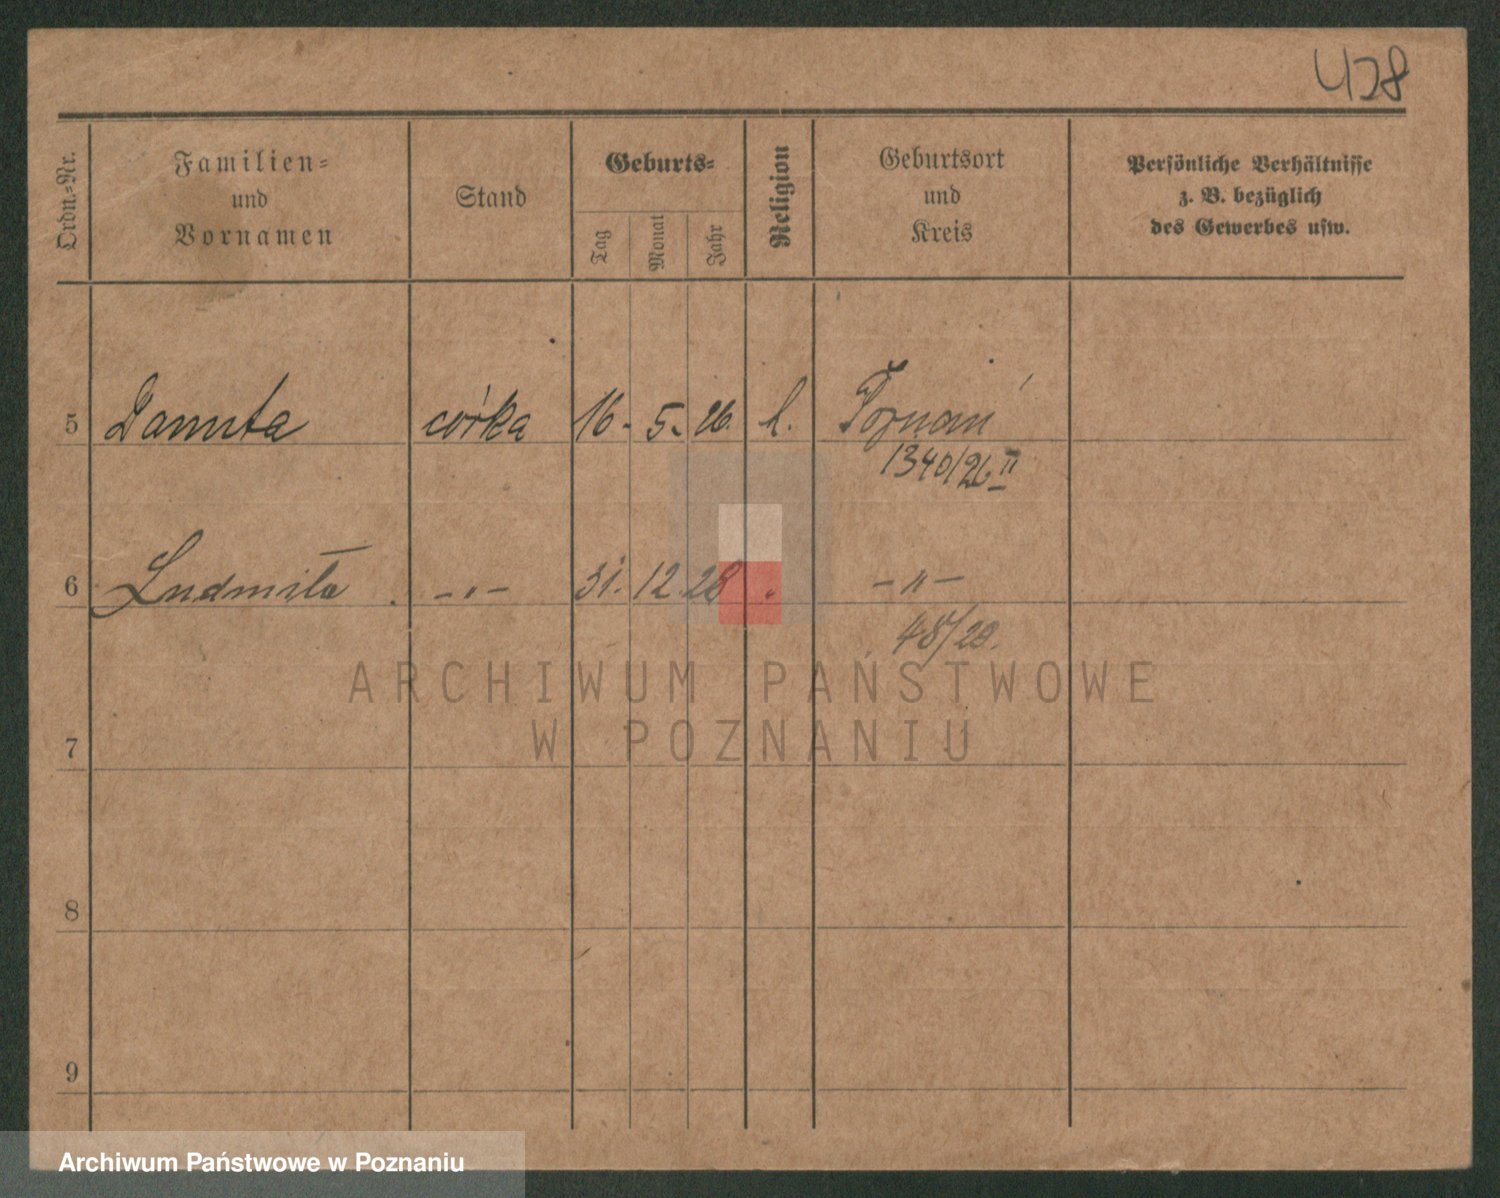 438
Ordn.-Nr.
Familien-
und
Vornamen
Stand
Geburts-
Tag
Monat
Jahr
Religion
Geburtsort
und
Kreis
Persönliche Verhältnisse
z. B. bezüglich
des Gewerbes usw.
5 Danuta córka 16. 5. 26. k. Poznań
1340/26 II
6 Ludmiła -"- 31. 12. 28 " -"-
ARCHIWUM PAŃSTWOWE
W POZNANIU
7
8
9
Archiwum Państwowe w Poznaniu